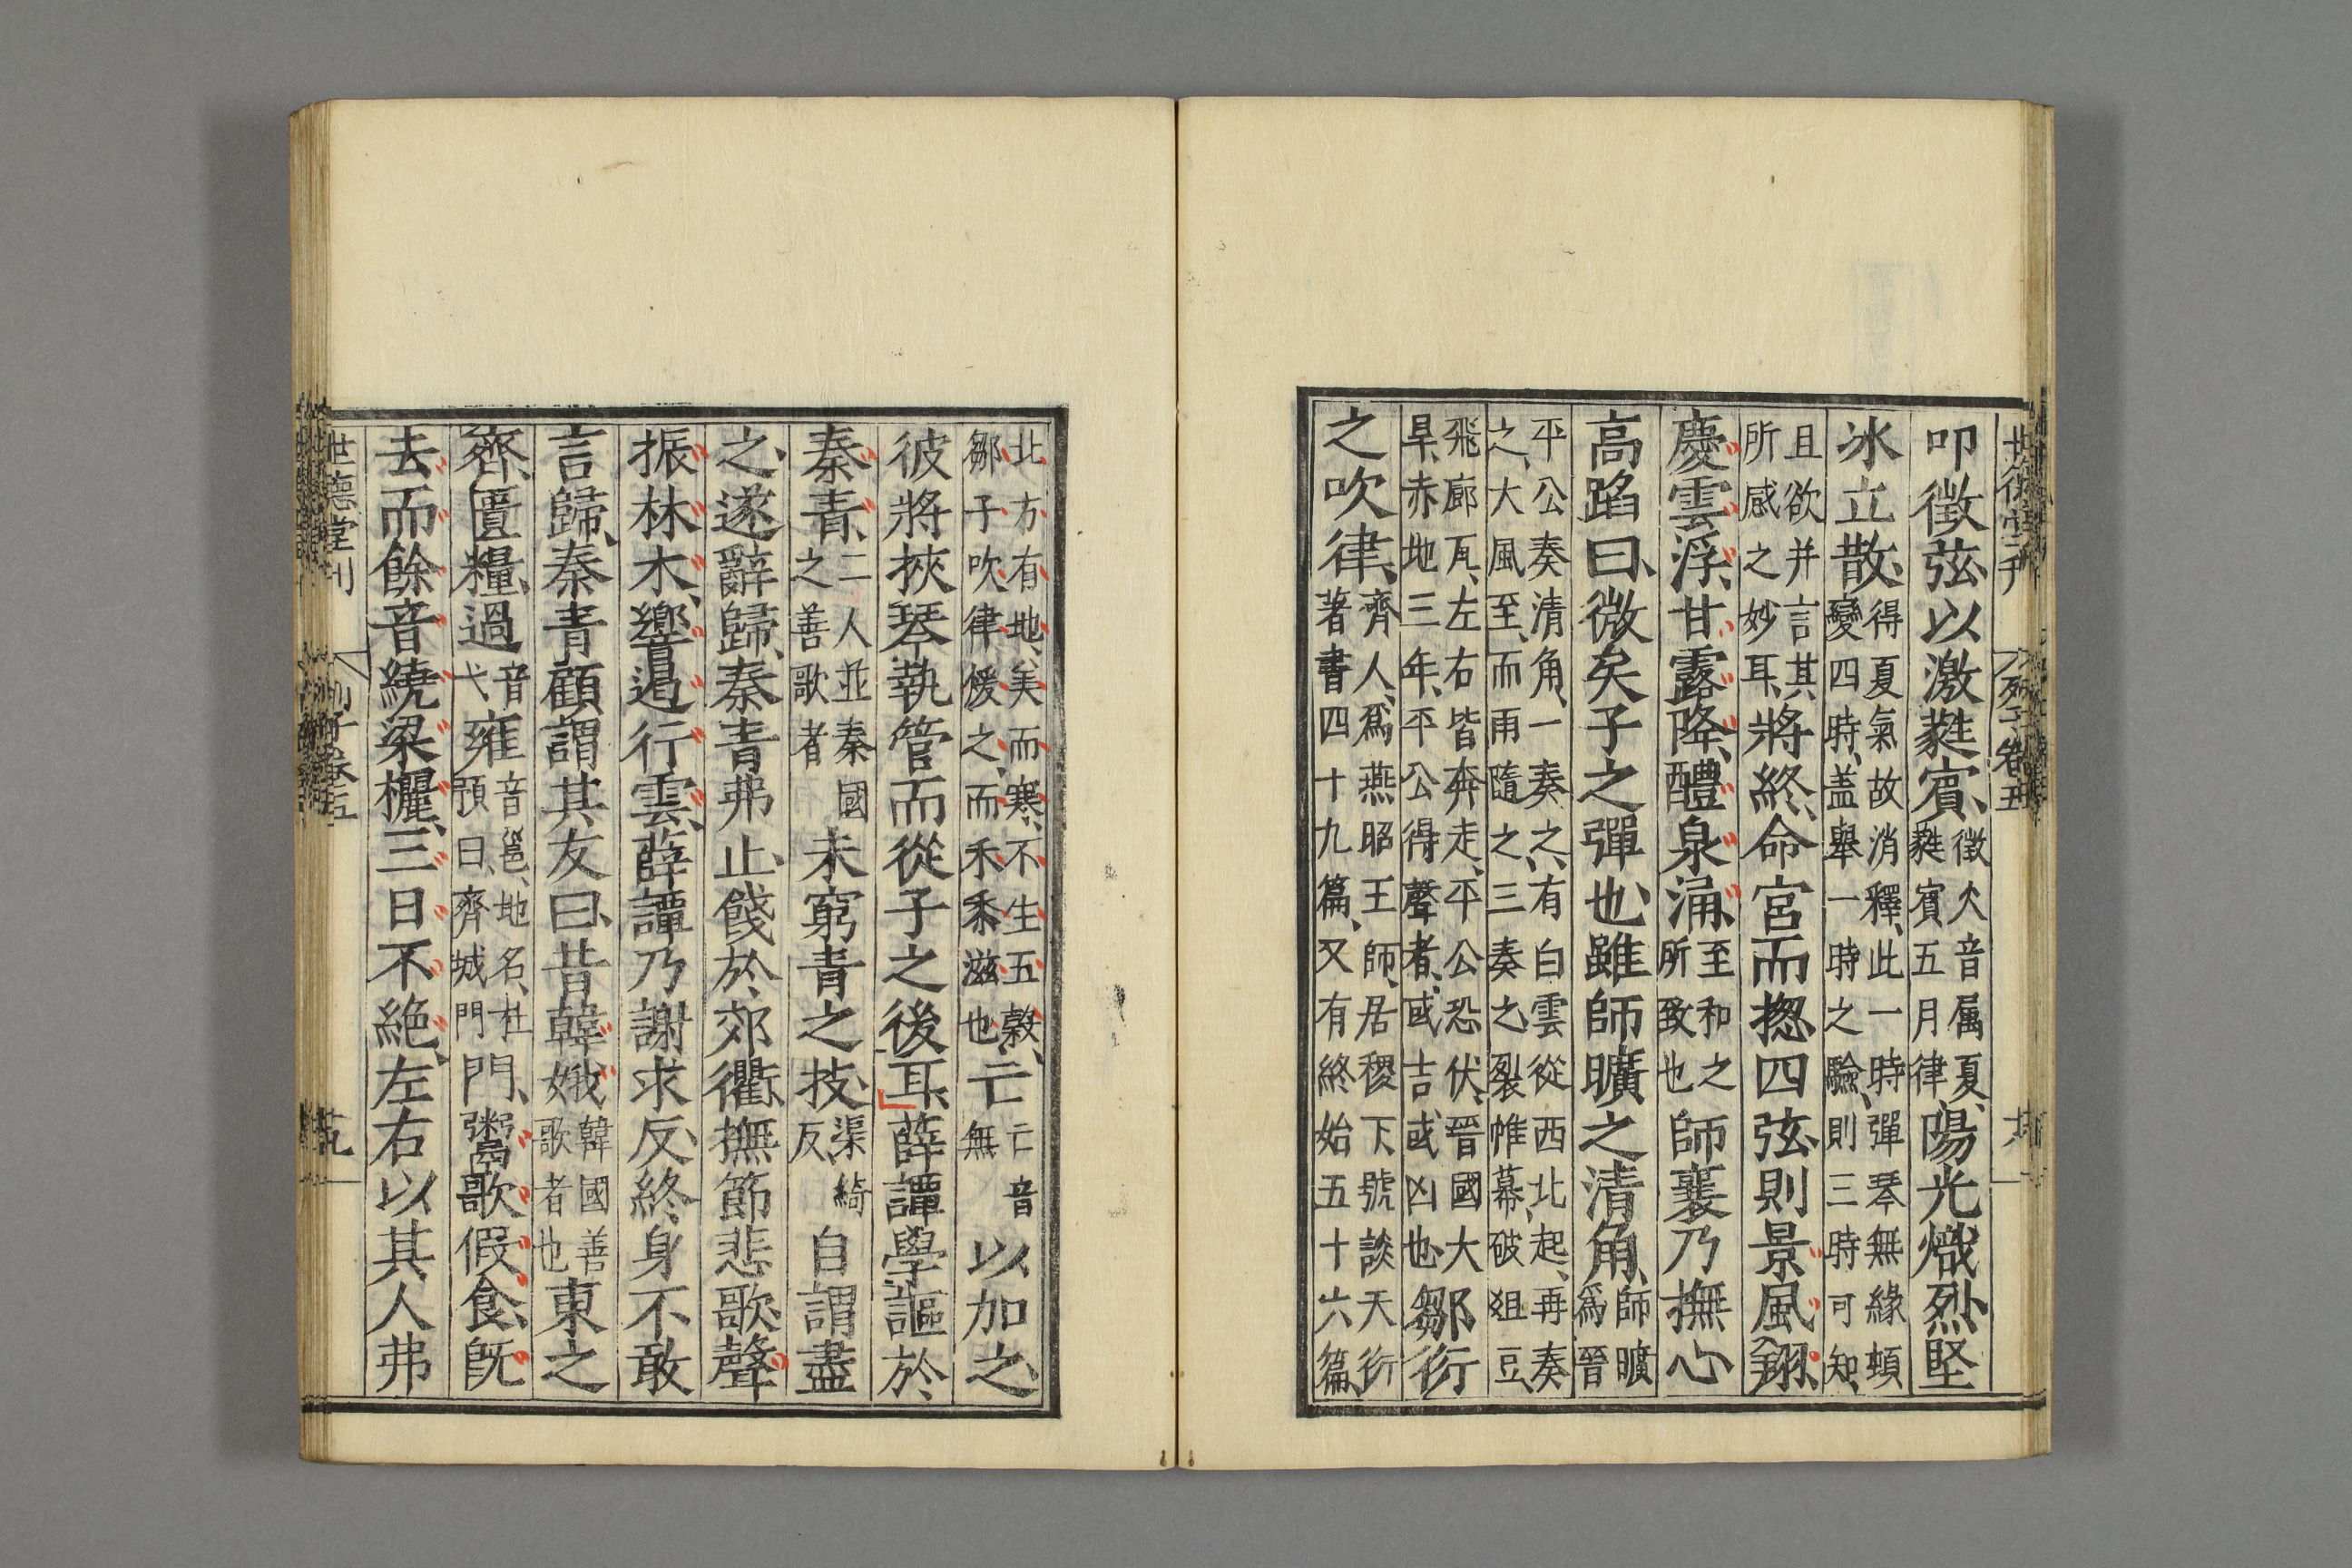 世德堂刊 列子卷五 十八
叩徵弦以激蕤賓、徵火音属夏、蕤賓五月律、陽光熾烈堅
冰立散、得夏氣故消釋、此一時彈琴無緣頓變四時、盖舉一時之驗、則三時可知、
且欲并言其所感之妙耳、將終、命宮而揔四弦、則景風翔、
慶雲浮、甘露降、醴泉涌、至和之所致也師襄乃撫心
高蹈曰、微矣子之彈也、雖師曠之清角、師曠爲晉
平公奏清角、一奏之、有白雲從西北起、再奏之、大風至、而雨隨之、三奏之、裂帷幕、破俎豆、
飛廊瓦、左右皆奔走、平公恐伏、晉國大旱、赤地三年、平公得聲者、或吉或凶也、鄒衍
之吹律、齊人、爲燕昭王師、居稷下、號談天衍著書四十九篇、又有終始五十六篇、
北方有地、美而寒、不生五穀、鄒子吹律煖之、而禾黍滋也、亡亡音無以加之、
彼將挾琴執管而從子之後耳、薛譚學謳於
秦青、二人並秦國之善歌者未窮青之技、渠綺反、自謂盡
之、遂辭歸、秦青弗止、餞於郊衢、撫節悲歌、聲
振林木、響遏行雲、薛譚乃謝求反、終身不敢
言歸、秦青顧謂其友曰、昔韓娥韓國善歌者也東之
齊、匱糧、過音弋雍音邕、地名、杜預曰、齊城門門、鬻歌假食、旣
去、而餘音繞梁欐、三日不絶、左右以其人弗
世德堂刊 列子卷五 十九